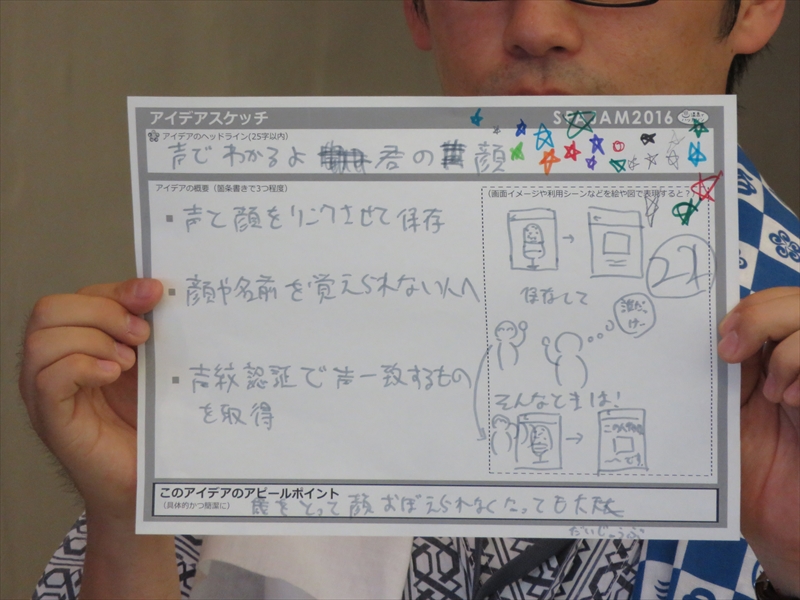 アイデアスケッチ
SPAJAM2016
アイデアのヘッドライン(25字以内)
声でわかるよ 君の 顔
アイデアの概要(箇条書きで3つ程度)
(画面イメージや利用シーンなどを絵や図で表現すると?)
■ 声と顔をリンクさせて保存
■ 顔や名前を覚えられない人へ
■ 声紋認証で声一致するもの
を取得
21
保存して
誰だっ
け…
そんなときは!
この人の
です
このアイデアのアピールポイント
(具体的かつ簡潔に)
歳をとって顔おぼえられなくなっても大丈夫
だいじょうぶ